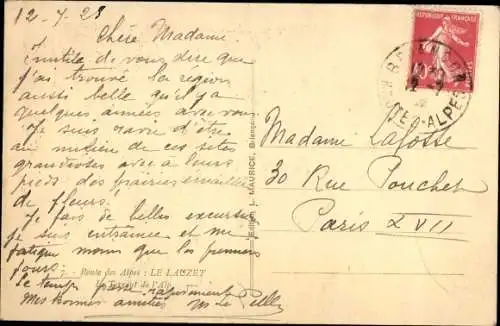 12-7-28
Chère Madame.
Inutile de vous dire que
j'ai trouvé la région
aussi belle qu'il y a
quelques années avec vous
Je suis ravie d'être
au milieu de ces sites
grandioses avec à leurs
pieds des prairies émaillées
de fleurs!
Je fais de belles excursions
je suis entrainée et me
fatigue moins que les premiers
jours.
7. - Route des Alpes : LE LAUZET
Le Torrent de l'Alp
Le temps passe rapidement
Mes bonnes amitiés
Edition L. MAURICE, Briançon
REPUBLIQUE FRANÇAISE
BRIANÇON
12 -7
HAUTES-ALPES
Madame Lafosse
30 Rue Pouchet
Paris XVII